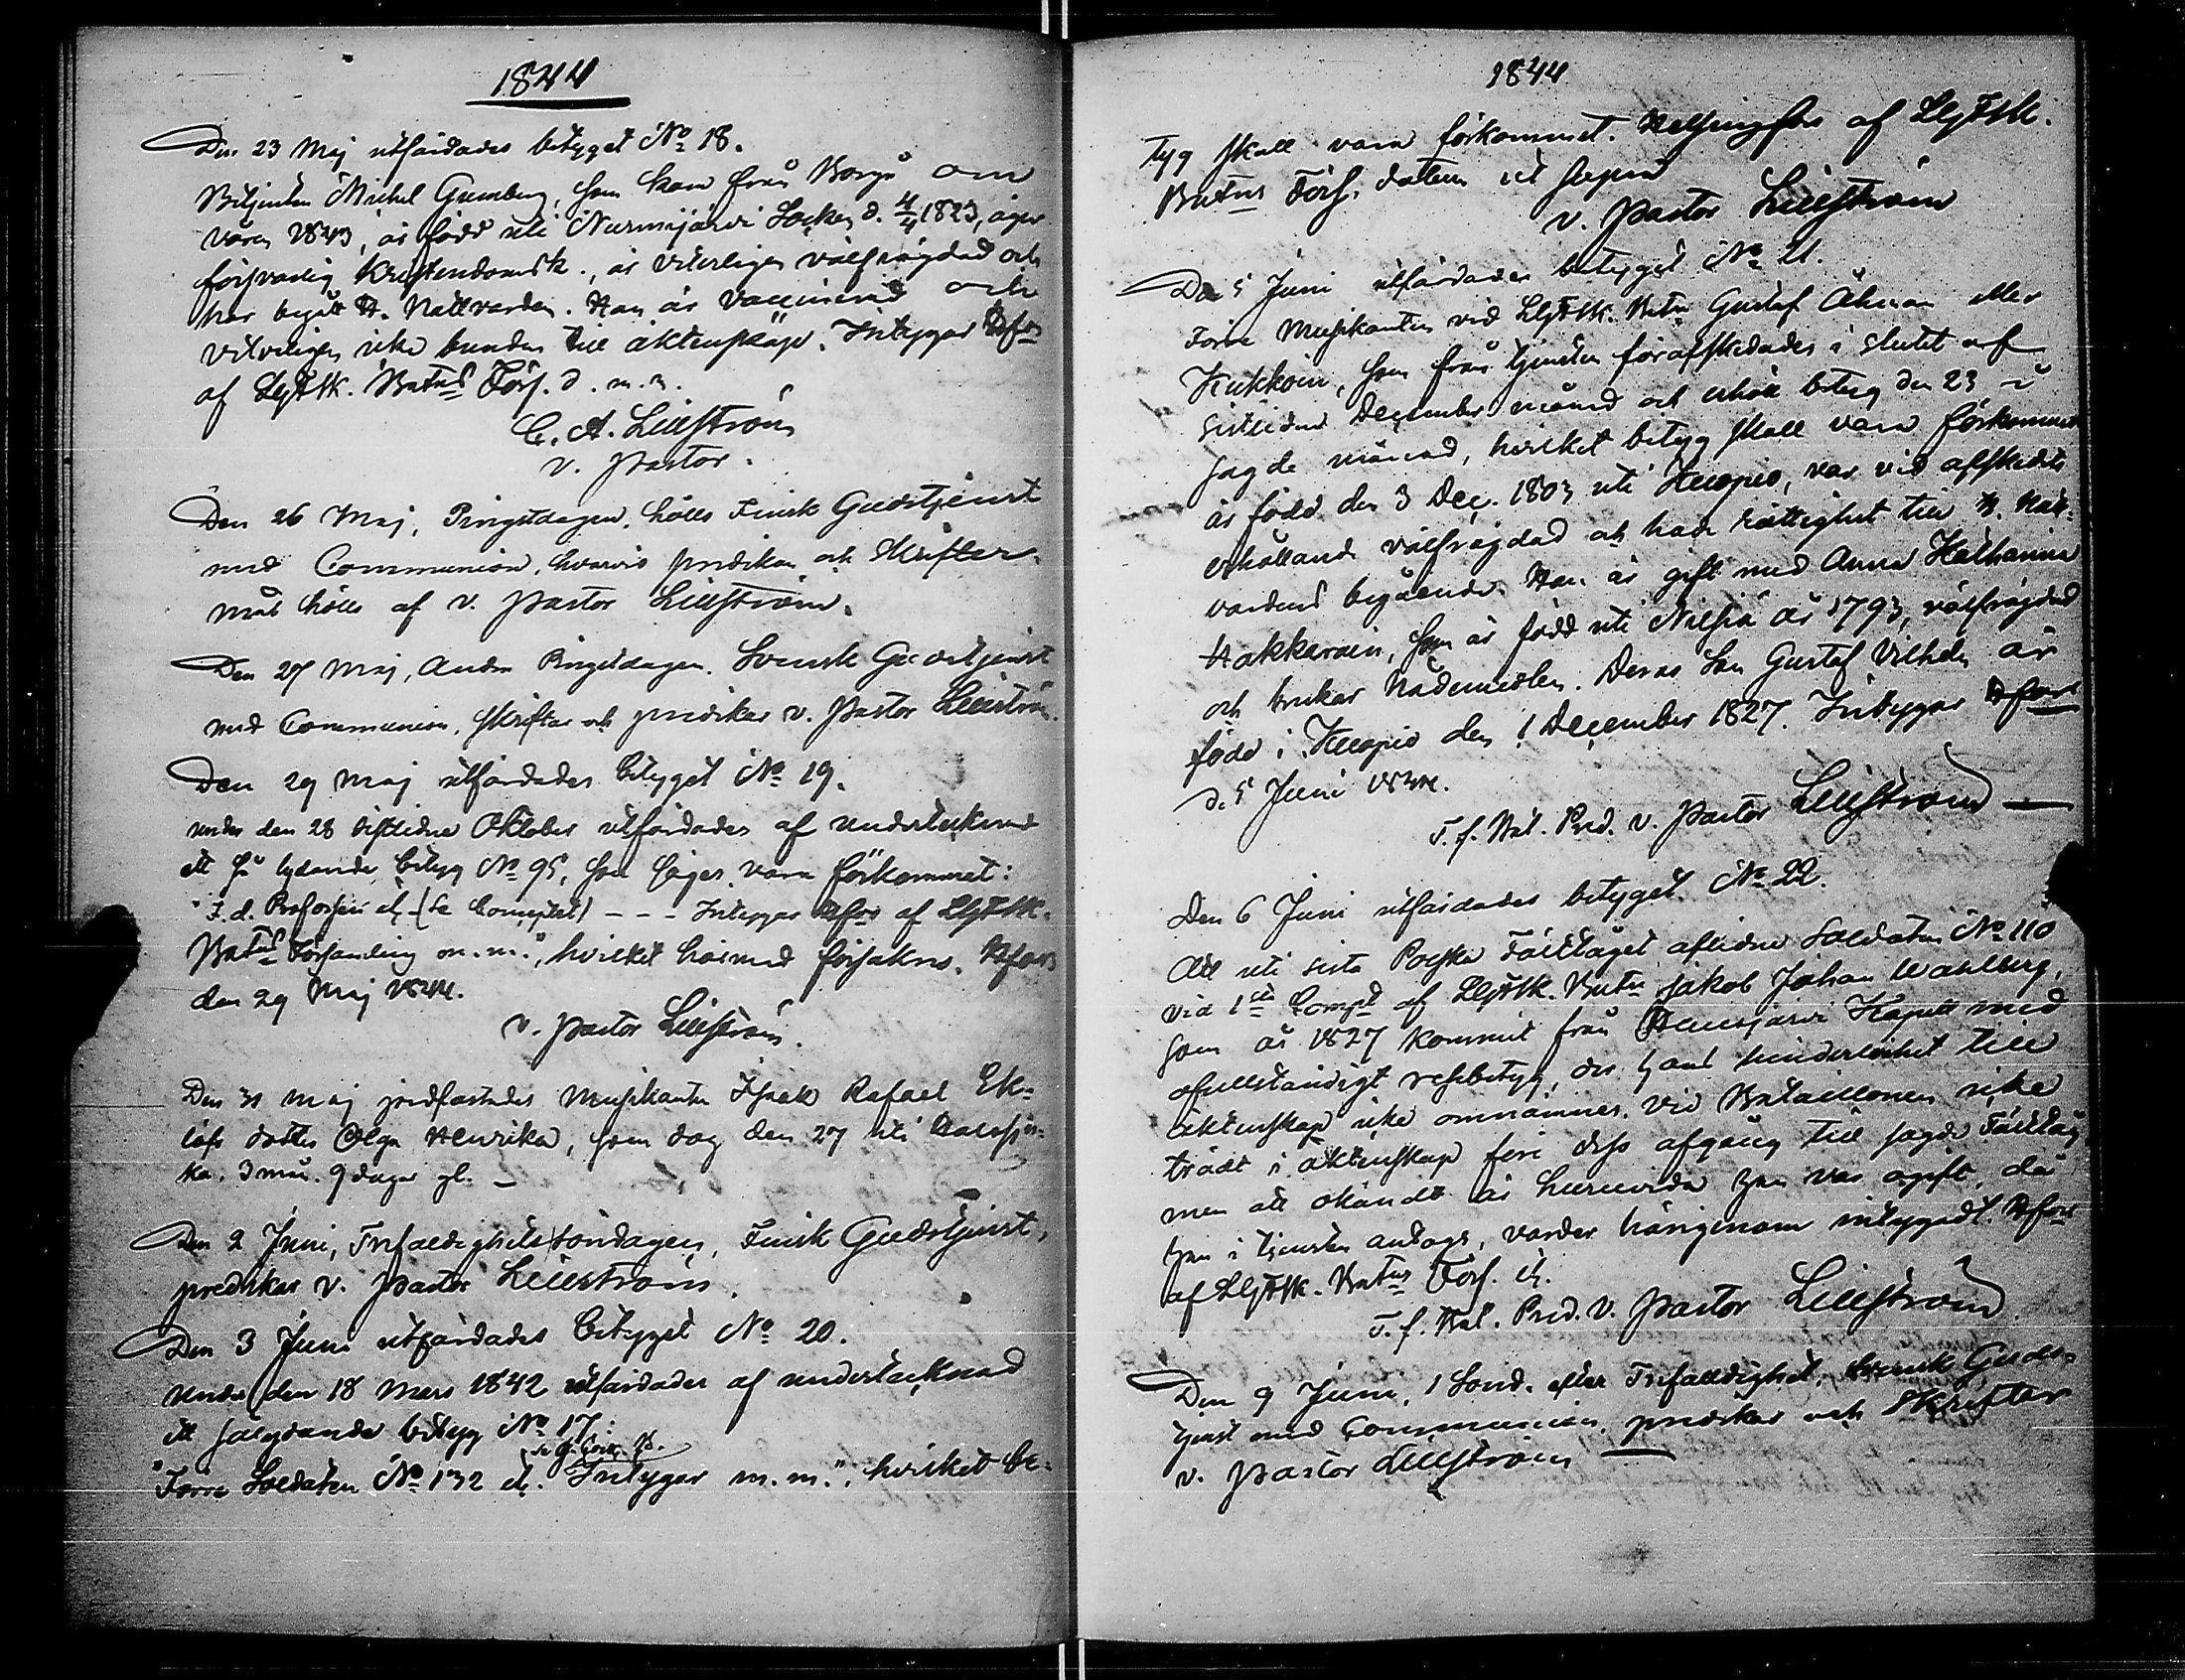 1844
Den 23 Maj utfärdades betyget No 18.
Betjenten Michel Grunberg, som kom från Borgå om
våren 1843, är född uti Nurmijärvi Socken d. 4/4 1823, äger
försvarlig Kristendomsk., är veterligen välfrägdad och
har begått H. Nattvarden. Han är vaccinerad och
veterligen icke bunden till äktenskap. Intygar Hfors
af LGFSk. Batns Förs. d. m. m.
C. A. Lillström
v. Pastor.
Den 26 Maj, Pingstdagen, hölls Finsk Gudstjenst
med Communion, hvarvid predikan och Skrifter-
mål hölls af v. Pastor Lillström.
Den 27 Maj, Andra Pingstdagen. Svensk Gudstjenst
med Communion, skriftar och predikar v. Pastor Lillström.
Den 29 Maj utfärdades betyget No 19.
Under den 28 sistlidne Oktober utfärdades af undertecknad
ett så lydande betyg No 95, som säges vara förkommet:
"F. d. Profossen etc (se Conceptet) - - - Intygar Hfors af LGFSk.
Batns Församling m. m.", hvilket härmed försäkras. Hfors
den 29 Maj 1844.
v. Pastor Lillström.
Den 31 Maj jordfästades Musikanten Isaak Rafael Ek-
löfs dotter Olga Henrika, som dog den 27 uti
ka. 3 mån. 9 dagar gl.
Den 2 Juni, Trefaldighetssöndagen, Finsk Gudstjenst,
predikar v. Pastor Lillström.
Den 3 Juni utfärdades betyget No 20.
Under den 18 Mars 1842 utfärdades af undertecknad
ett sålydande betyg No 17:
"Förre Soldaten No 132 etc. Intygar m. m.", hvilket be-
1844
tyg skall vara förkommet. Helsingfors af LGFSk.
Batns Förs. datum ut supra
v. Pastor Lillström
Den 5 Juni utfärdades betyget No 21.
Förre Musikanten vid LGFSk. Batn Gustaf Åhman eller
Kukkoin, som från tjensten förafskedades i slutet af
sistlidne December månad och erhöll betyg den 23 i
sagde månad, hvilket betyg skall vara förkommet
är född den 3 Dec. 1803 uti Kuopio, var vid afskedets
erhållande välfrägdad och hade rättighet till H. Natt-
vardens begående. Han är gift med Anna Katharina
Hakkarain, som är född uti Nilsiä år 1793, välfrägdad
och brukar Nådemedlen. Deras Son Gustaf Vilhelm är
född i Kuopio den 1 December 1827. Intygar Hfors
d. 5 Juni 1844.
T. f. Bat. Pred. v. Pastor Lillström
Den 6 Juni utfärdades betyget No 22.
Att uti sista Polska Fälttåget aflidne Soldaten No 110
vid 1sta Compt af LGFSk. Batn Jakob Johan Wahlberg,
som år 1827 kommit från Kapell med
ofullständigt resbetyg, der hans hinderlöshet till
äktenskap icke omnämnes, vid Bataillonen icke
trädt i äktenskap före dess afgång till sagde Fälttåg
men att okändt är huruvida han var ogift, då
han i tjensten antogs, varder härigenom intygadt. Hfors
af LGFSk. Batns Förs. etc.
T. f. Bat. Pred. v. Pastor Lillström
Den 9 Juni, 1 Sönd. efter Trefaldighet, Svensk Guds-
tjenst med Communion, predikar och Skriftar
v. Pastor Lillström